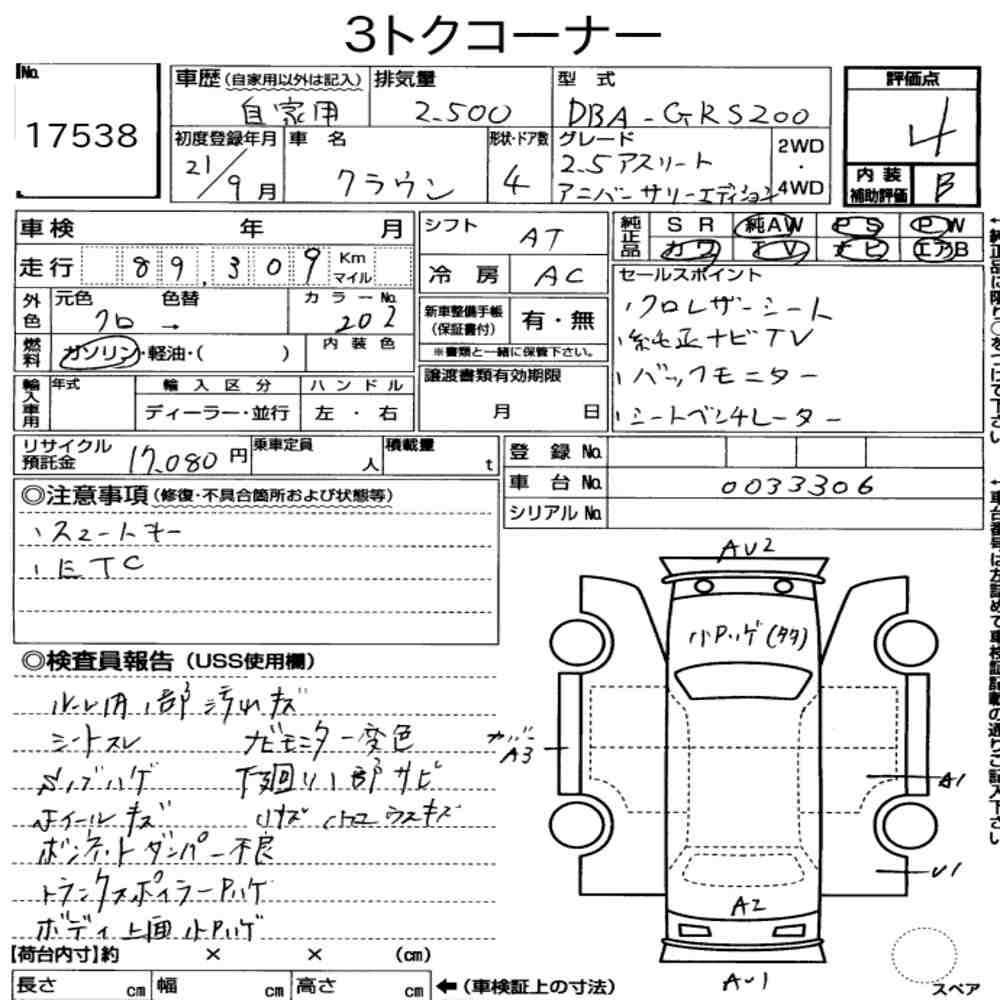 3トクコーナー
No. 17538
車歴(自家用以外は記入) 自家用
排気量 2.500
型式 DBA-GRS200
評価点 4
内装補助評価 B
初度登録年月 21/9月
車名 クラウン
形状・ドア数 4
グレード 2.5アスリート
アニバーサリーエディション
2WD・4WD
車検 年 月
走行 89,309 Km マイル
シフト AT
冷房 AC
純正品 SR 純AW PS PW
カワ TV ナビ エアB
外色 元色 クロ → 色替
カラーNo. 202
燃料 ガソリン・軽油・( )
内装色
新車整備手帳(保証書付) 有・無
※書類と一緒に保管下さい。
輸入車用 年式 輸入区分 ハンドル
ディーラー・並行 左・右
譲渡書類有効期限
月 日
セールスポイント
、クロレザーシート
、純正ナビTV
、バックモニター
、シートベンチレーター
リサイクル預託金 17,080円
乗車定員 人
積載量 t
登録No.
車台No. 0033306
シリアルNo.
◎注意事項(修復・不具合箇所および状態等)
、スマートキー
、ETC
◎検査員報告(USS使用欄)
ルーム内小部汚れキズ
シートスレ ナビモニター変色
Sノブハゲ 下廻り小部サビ
ホイールキズ
ボンネットダンパー不良
トランクスポイラーPハゲ
ボディ上面小Pハゲ
AU2
小Pハゲ(タタ)
A3
A1
U1
A2
AU1
【荷台内寸】約 × × (cm)
長さ cm 幅 cm 高さ cm ←(車検証上の寸法)
スペア
←純正品に限り○をつけて下さい
←車台番号は左詰めで車検証記載の通りご記入下さい